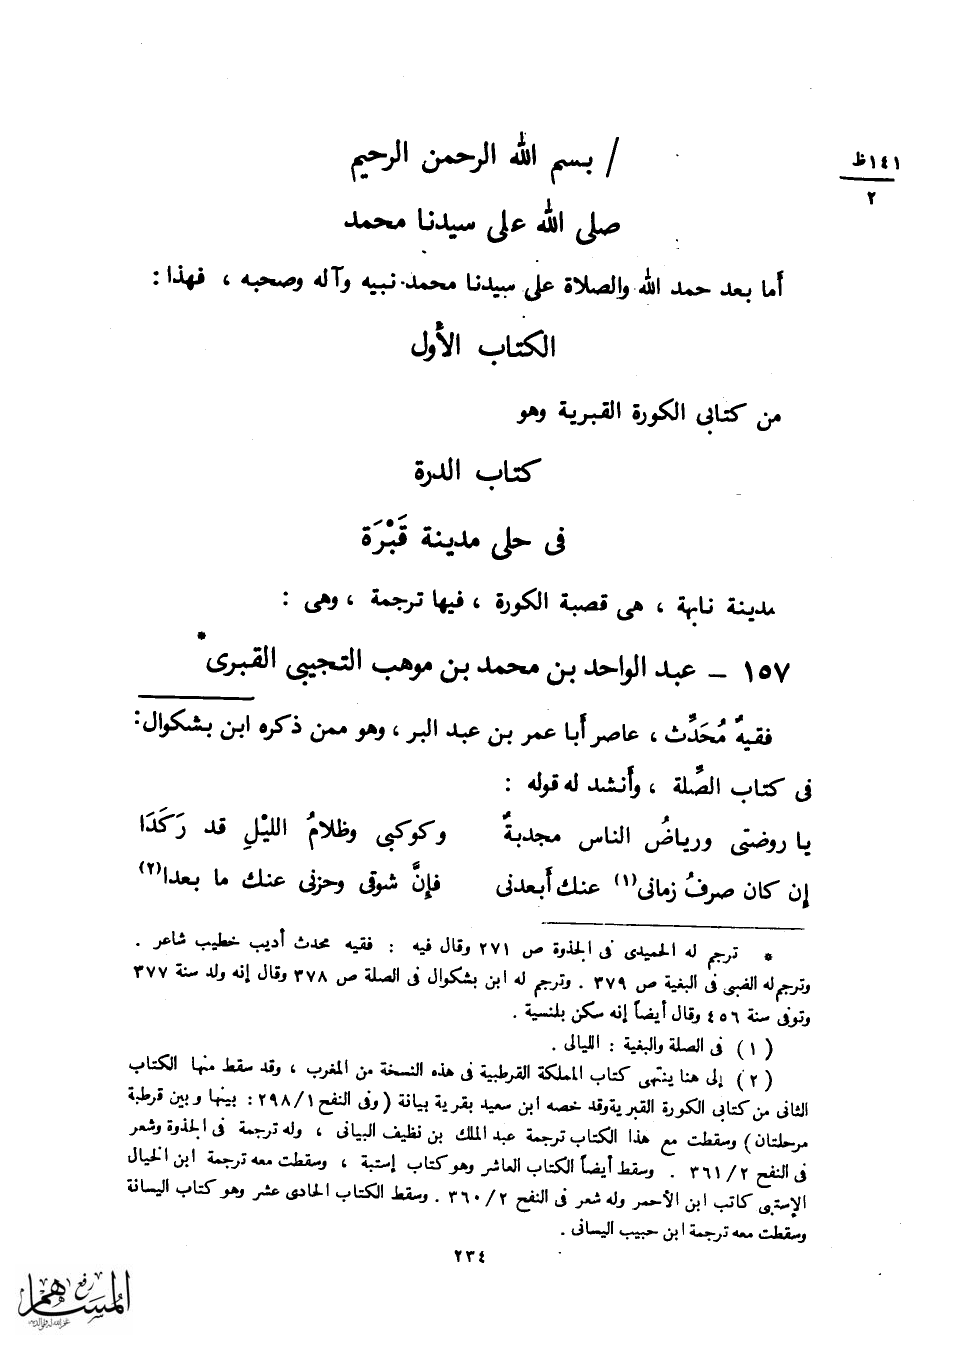 ١٤١ظ
٢
/ بسم الله الرحمن الرحيم
صلى الله على سيدنا محمد
أما بعد حمد الله والصلاة على سيدنا محمد نبيه وآله وصحبه ، فهذا :
الكتاب الأول
من كتابى الكورة القبرية وهو
كتاب الدرة
فى حلى مدينة قَبْرَة
مدينة نابهة ، هى قصبة الكورة ، فيها ترجمة ، وهى :
١٥٧ – عبد الواحد بن محمد بن موهب التجيبى القبرى*
فقيهٌ مُحَدِّث ، عاصر أبا عمر بن عبد البر ، وهو ممن ذكره ابن بشكوال:
فى كتاب الصِّلة ، وأنشد له قوله :
يا روضتى ورياضُ الناس مجدبةٌ وكوكبى وظلامُ الليْلِ قد رَكَدَا
إن كان صرفُ زمانى(١) عنك أبعدنى فإنَّ شوقى وحزنى عنك ما بعدا(٢)
* ترجم له الحميدى فى الجذوة ص ٢٧١ وقال فيه : فقيه محدث أديب خطيب شاعر .
وترجم له الضبى فى البغية ص ٣٧٩ . وترجم له ابن بشكوال فى الصلة ص ٣٧٨ وقال إنه ولد سنة ٣٧٧
وتوفى سنة ٤٥٦ وقال أيضاً إنه سكن بلنسية .
(١) فى الصلة والبغية : الليالى .
(٢) إلى هنا ينتهى كتاب المملكة القرطبية فى هذه النسخة من المغرب ، وقد سقط منها الكتاب
الثانى من كتابى الكورة القبرية وقد خصه ابن سعيد بقرية بيانة (وفى النفح ٢٩٨/١ : بينها وبين قرطبة
مرحلتان) وسقطت مع هذا الكتاب ترجمة عبد الملك بن نظيف البيانى ، وله ترجمة فى الجذوة وشعر
فى النفح ٣٦١/٢ . وسقط أيضاً الكتاب العاشر وهو كتاب إستبة ، وسقطت معه ترجمة ابن الخيال
الإستبى كاتب ابن الأحمر وله شعر فى النفح ٣٦٠/٢ . وسقط الكتاب الحادى عشر وهو كتاب اليسانة
وسقطت معه ترجمة ابن حبيب اليسانى .
٢٣٤
رفع
المساهم